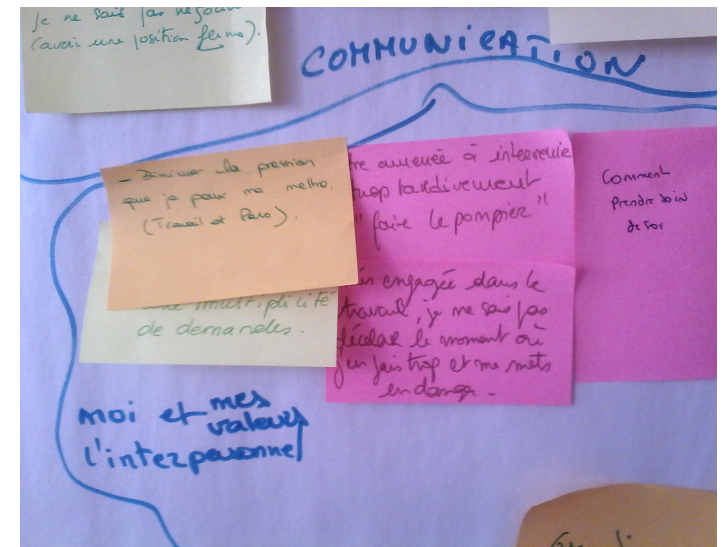 je ne sais pas négocier
(avoir une position ferme).
COMMUNICATION
- Diminuer la pression
que je peux me mettre.
(Travail et Perso).
être amenée à intervenir
trop tardivement
"faire le pompier"
Comment
Prendre soin
de soi
une multiplicité
de demandes.
engagée dans le
travail, je ne sais pas
déceler le moment où
j'en fais trop et me mets
en danger -
moi et mes
valeurs
l'interpersonnel